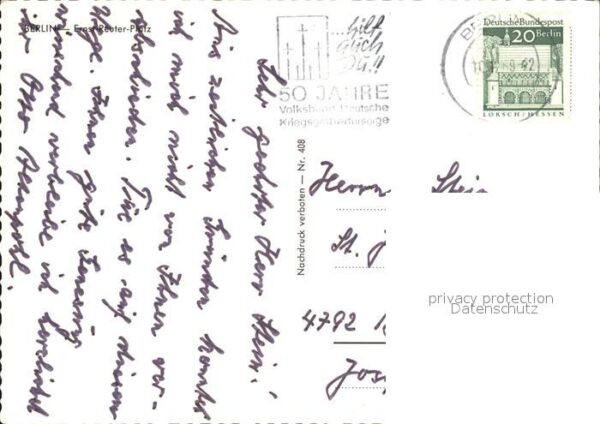 BERLIN — Ernst-Reuter-Platz
hilf
auch
Du!!
50 JAHRE
Volksbund Deutsche
Kriegsgräberfürsorge
BERLIN
Deutsche Bundespost
20 Berlin
LORSCH / HESSEN
Sehr geehrter Herr Stein!
Aus zeitlichen Gründen konnte
ich mich nicht von Ihnen ver-
abschieden. Tue es auf diesem
Wege. Ihnen gute Genesung
wünschend verbleibe ich herzlichst
Ihr Otto
Nachdruck verboten — Nr. 408
Herrn Stein
St. J
4792
Jos
privacy protection
Datenschutz